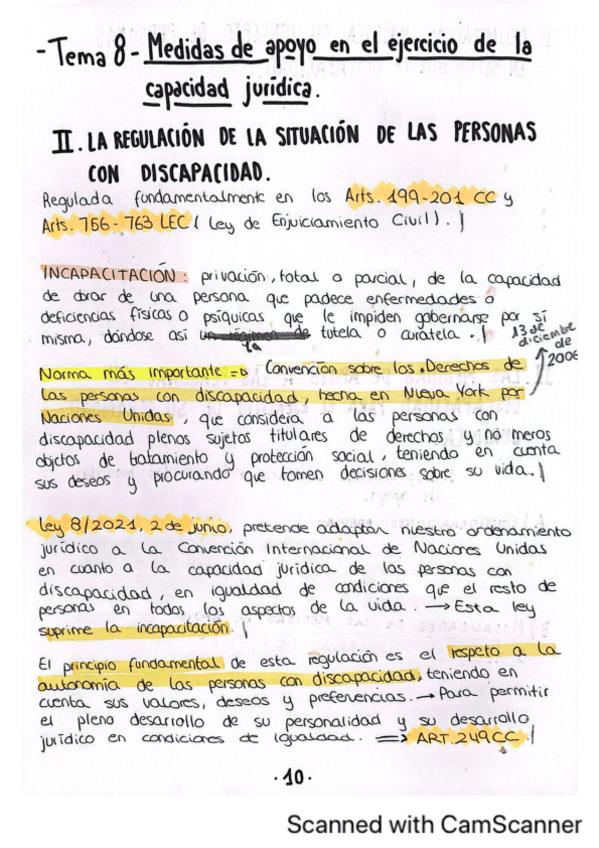 - Tema 8 - Medidas de apoyo en el ejercicio de la
capacidad jurídica.
II. LA REGULACIÓN DE LA SITUACIÓN DE LAS PERSONAS
CON DISCAPACIDAD.
Regulada fundamentalmente en los Arts. 199-201 CC y
Arts. 756-763 LEC (Ley de Enjuiciamiento Civil). |
INCAPACITACIÓN: privación, total o parcial, de la capacidad
de obrar de una persona que padece enfermedades o
deficiencias físicas o psíquicas que le impiden gobernarse por sí
misma, dándose así la tutela o curatela. |
13 de
diciembre
de
2006
Norma más importante => Convención sobre los Derechos de
las personas con discapacidad, hecha en Nueva York por
Naciones Unidas, que considera a las personas con
discapacidad plenos sujetos titulares de derechos y no meros
objetos de tratamiento y protección social, teniendo en cuenta
sus deseos y procurando que tomen decisiones sobre su vida. |
Ley 8/2021, 2 de junio, pretende adaptar nuestro ordenamiento
jurídico a la Convención Internacional de Naciones Unidas
en cuanto a la capacidad jurídica de las personas con
discapacidad, en igualdad de condiciones que el resto de
personas en todos los aspectos de la vida. → Esta ley
suprime la incapacitación. |
El principio fundamental de esta regulación es el respeto a la
autonomía de las personas con discapacidad, teniendo en
cuenta sus valores, deseos y preferencias. → Para permitir
el pleno desarrollo de su personalidad y su desarrollo
jurídico en condiciones de igualdad. => ART. 249 CC. |
· 10 ·
Scanned with CamScanner